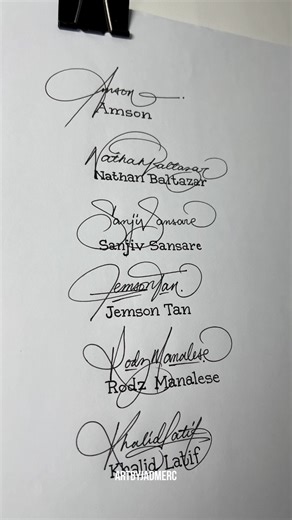 Amson
Amson
Nathan Baltazar
Nathan Baltazar
Sanjiv Sansare
Sanjiv Sansare
Jemson Tan.
Jemson Tan
Rodz Manalese
Rodz Manalese
Khalid Latif
Khalid Latif
ARTBYJADMERC